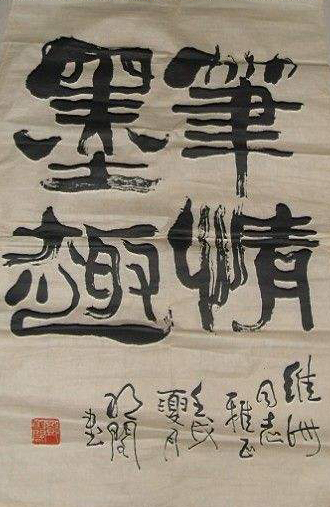 筆情
墨趣
維洲
同志
雅正
壬戌
夏月
書